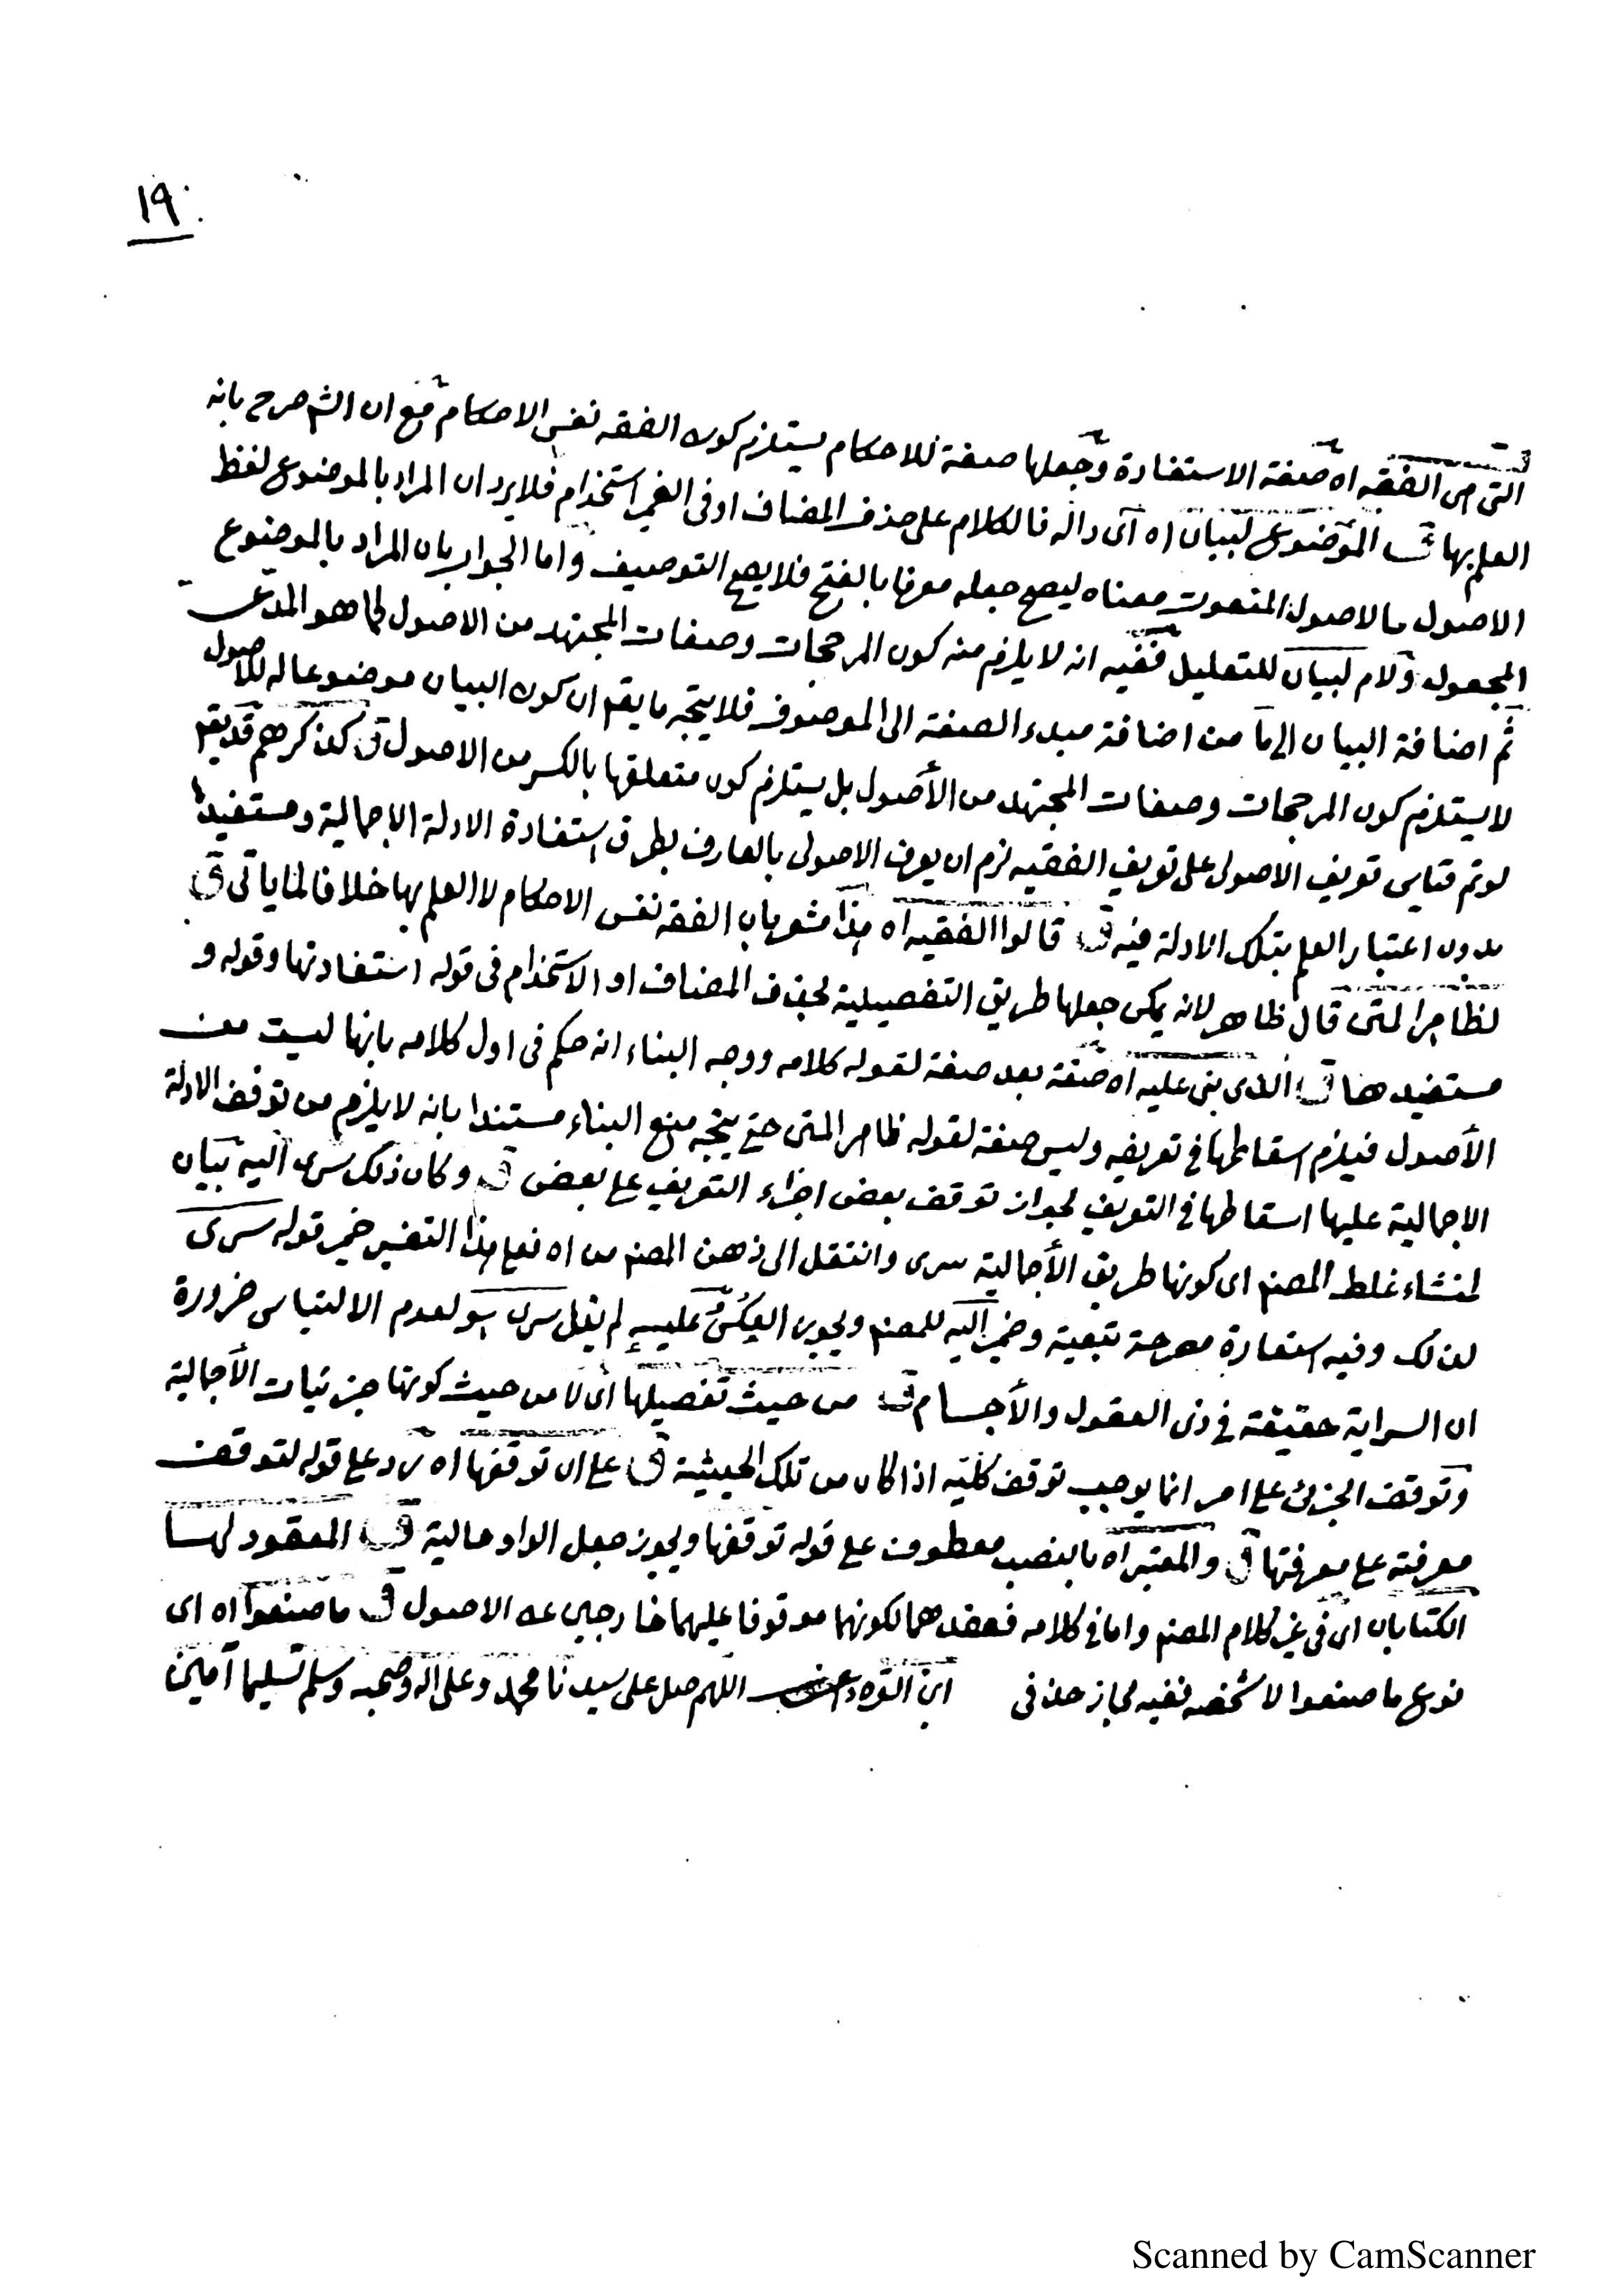 ١٩
التي هي الفقه اه صفة الاستفادة وجعلها صفة للاحكام يستلزم كون الفقه نفس الاحكام مع ان الش صرح بانه
العلم بها ق الموضوع لبيان اه اى داله فالكلام على حذف المضاف او فى الضمير استخدام فلا يرد ان المراد بالموضوع لفظ
الاصول مالاصول المنعوت معناه ليصح جعله معرفا بالفتح فلا يصح التوصيف واما الجواب بان المراد بالموضوع
المجعول ولام لبيان للتعليل ففيه انه لا يلزم منه كون المرجحات وصفات المجتهد من الاصول كما هو المدعى
ثم اضافة البيان الى ما من اضافة مبدء الصفة الى الموصوف فلا يتجه ما يقم ان كون البيان موضوعا له للاصول
لا يستلزم كون المرجحات وصفات المجتهد من الأصول بل يستلزم كون متعلقها بالكسر من الاصول ق كذكرهم قد يقم
لو تم قياس تعريف الاصولى على تعريف الفقيه لزم ان يعرف الاصولى بالعارف بطرق استفادة الادلة الاجمالية ومستفيدها
بدون اعتبار العلم بتلك الادلة فيه ق قالوا الفقيه اه هذا مشعر بان الفقه نفس الاحكام لا العلم بها خلافا لما يأتى ق
لظاهر المتن قال ظاهر لانه يمكن جعلها طريق التفصيلية بحذف المضاف او الاستخدام فى قوله استفادتها وقوله و
مستفيدها ق الذى بنى عليه اه صفة بعد صفة لقوله كلامه ووجه البناء انه حكم فى اول كلامه بانها ليست من
الأصول فيلزم اسقاطها فى تعريفه وليس صفة لقوله ظاهر المتن حتى يتجه منع البناء مستندا بانه لا يلزم من توقف الادلة
الاجمالية عليها اسقاطها فى التعريف لجواز توقف بعض اجزاء التعريف على بعض ق وكان ذلك سرى اليه بيان
لمنشاء غلط المصنم اى كونها طريق الأجمالية سرى وانتقل الى ذهن المصنم من اه فعلى هذا التفسير ضمير قوله سرى
لذلك وفيه استعارة مصرحة تبعية وضمير اليه للمصنم ويجوز العكس عليه لم يقل سرى هو لعدم الالتباس ضرورة
ان السراية حقيقة فى ذى العقول والأجسام ق من حيث تفصيلها اى لا من حيث كونها جزئيات الأجمالية
وتوقف الجزئى على امر انما يوجب توقف كليه اذا كان من تلك الحيثية ق على ان توقفها اه رد على قوله لتوقف
معرفته على معرفتها ق والمعتبر اه بالنصب معطوف على قوله توقفها ويجوز جعل الواو حالية ق المعقود لها
الكتابان اى فى غير كلام المصنم واما فى كلامه فعقدهما لكونهما موقوفا عليهما خارجين عن الاصول ق ما صنعوا اه اى
نوع ما صنعوا لا شخصه ففيه مجاز حذفى ابن القره داغى اللهم صل على سيدنا محمد وعلى اله وصحبه وسلم تسليما آمين
Scanned by CamScanner